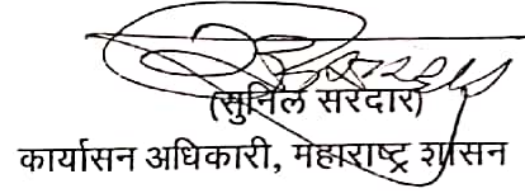 (सुनिल सरदार)
कार्यासन अधिकारी, महाराष्ट्र शासन